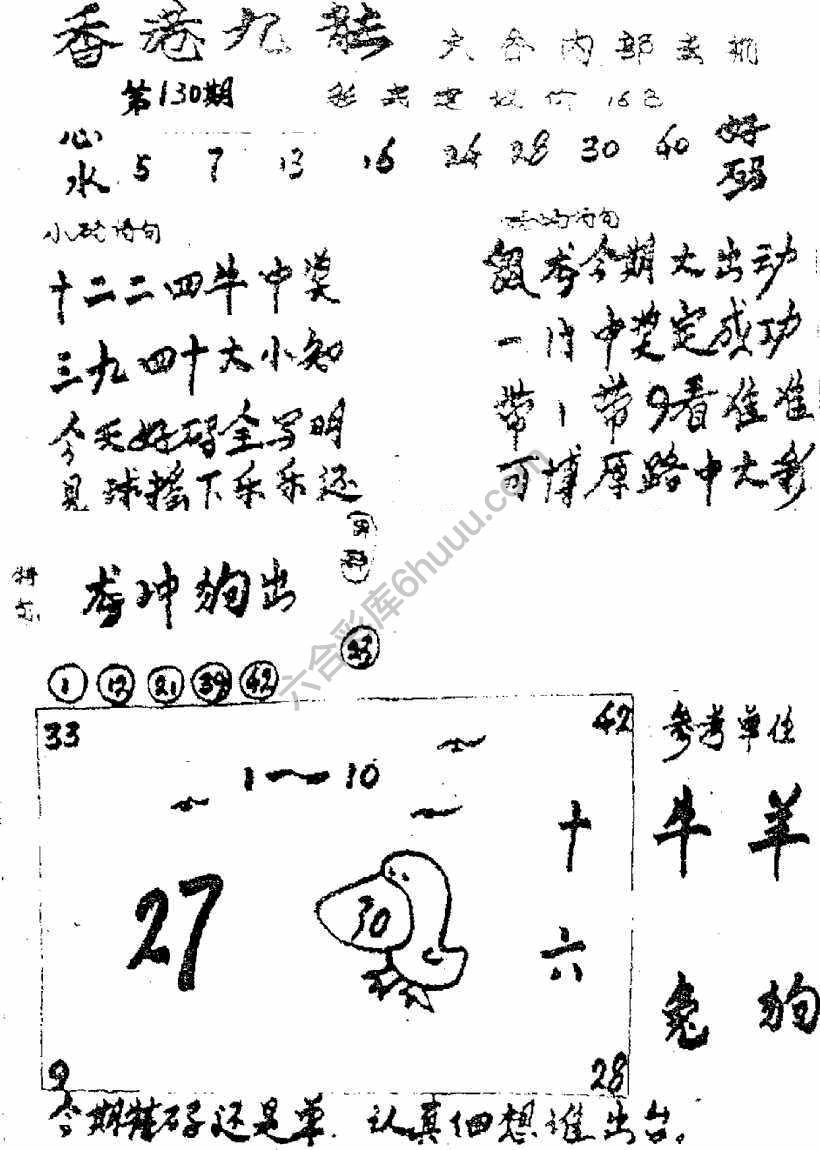 香港九龙 六合内部

第130期 16日
心水 5 7 13 16 24 28 30 40 好码
小码诗句
十二二四牛中奖
三九四十大小知
今天好码全写明
见球摇下乐乐还
诗句
银龙今期大出动
一肖中奖定成功
带1带9看准准
可博原路中大彩
特
龙冲狗出
1 12 21 39 42
33 42 参考单位
1～10
十六
牛 羊
27
30
兔 狗
9 28
今期特码还是单,认真细想谁出台。
六合彩库6huuu.com